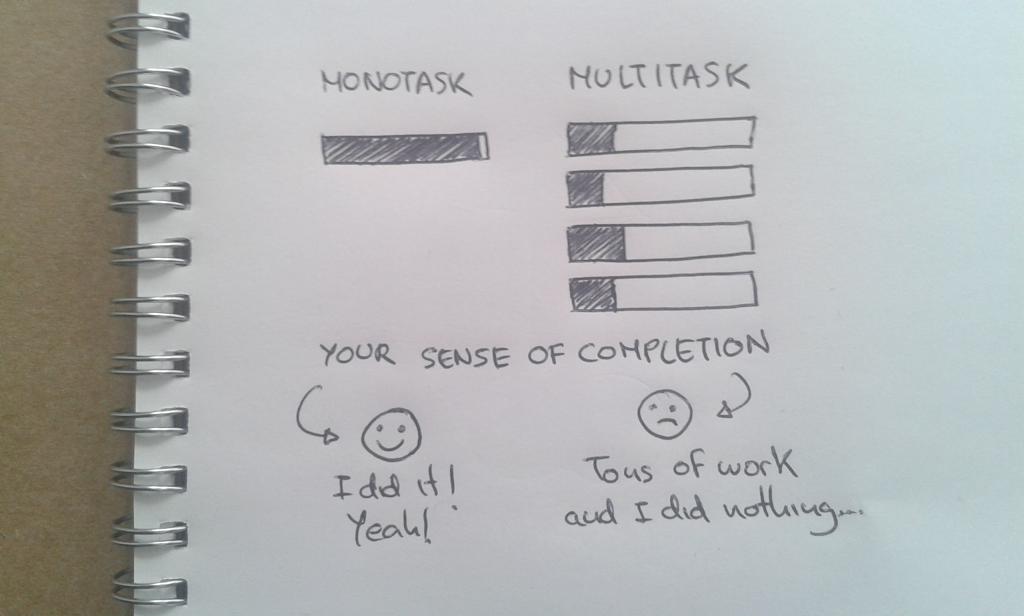 MONOTASK
MULTITASK
YOUR SENSE OF COMPLETION
I did it!
Yeah!
Tons of work
and I did nothing...